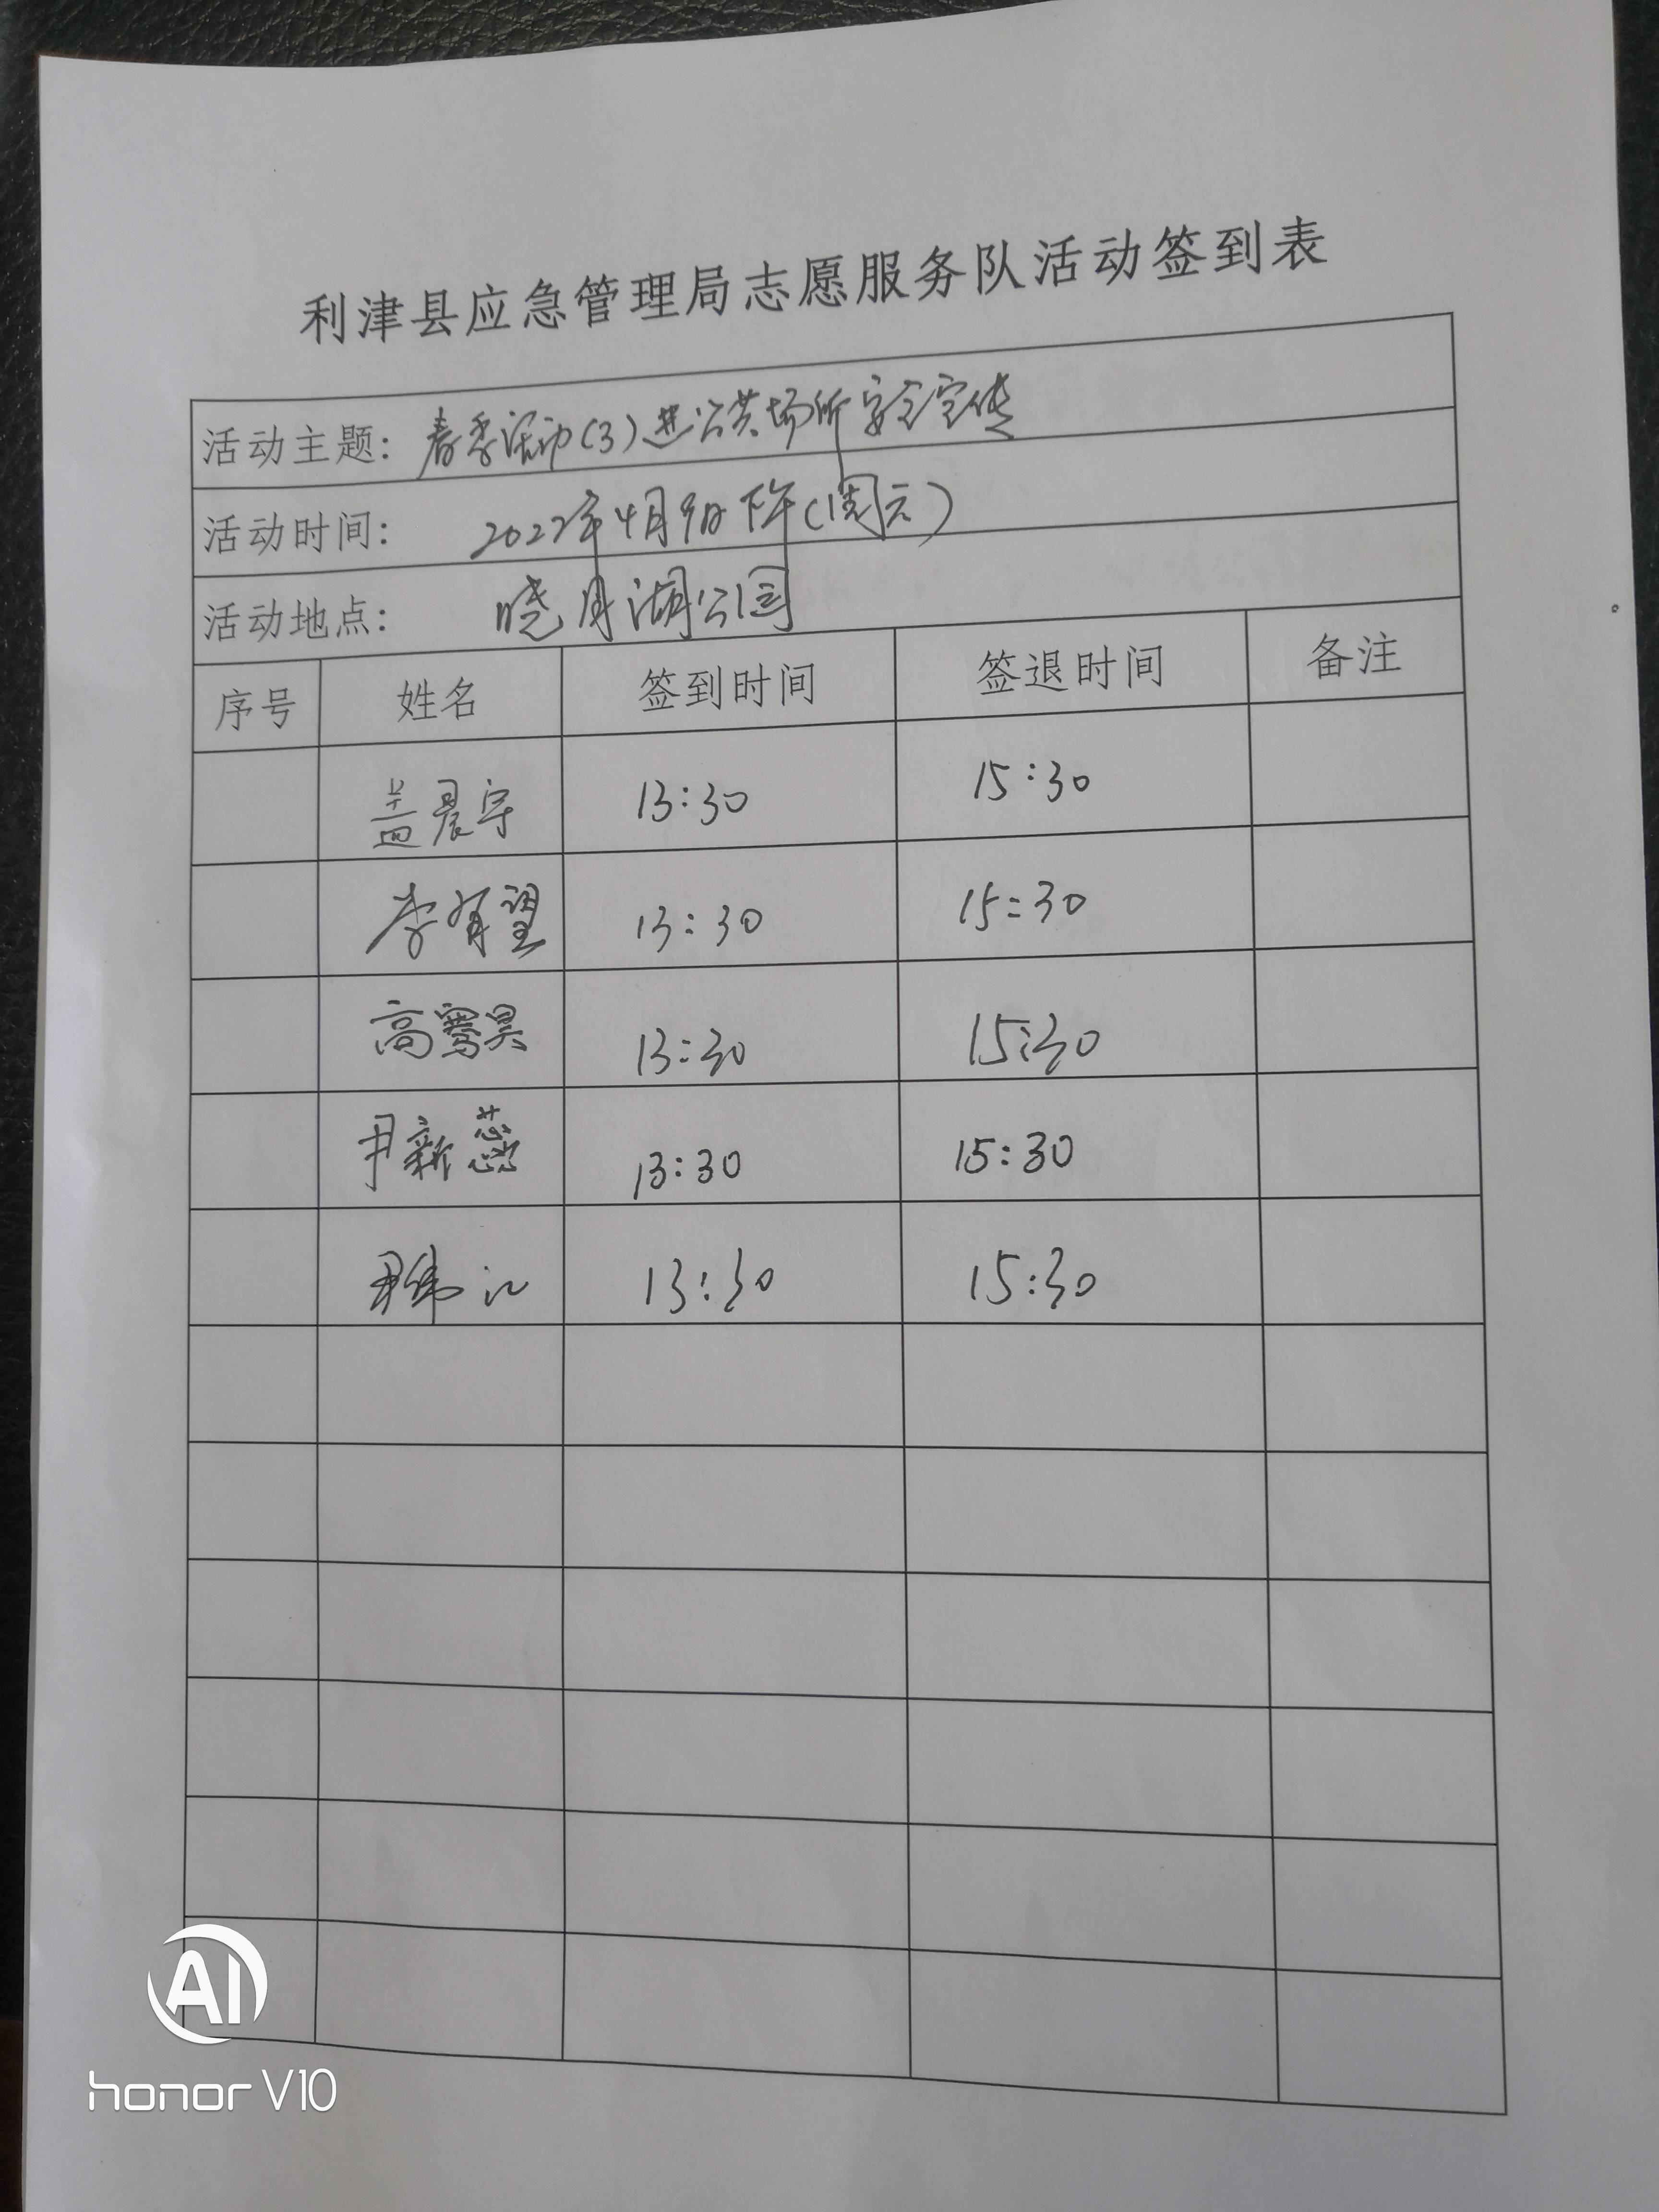 利津县应急管理局志愿服务队活动签到表
活动主题: 春季活动(3)进公共场所安全宣传
活动时间: 2022年4月9日下午(周六)
活动地点: 晓月湖公园
序号 姓名 签到时间 签退时间 备注
盖晨宇 13:30 15:30
李有望 13:30 15:30
高骞昊 13:30 15:30
尹新蕊 13:30 15:30
13:30 15:30
AI
honor V10